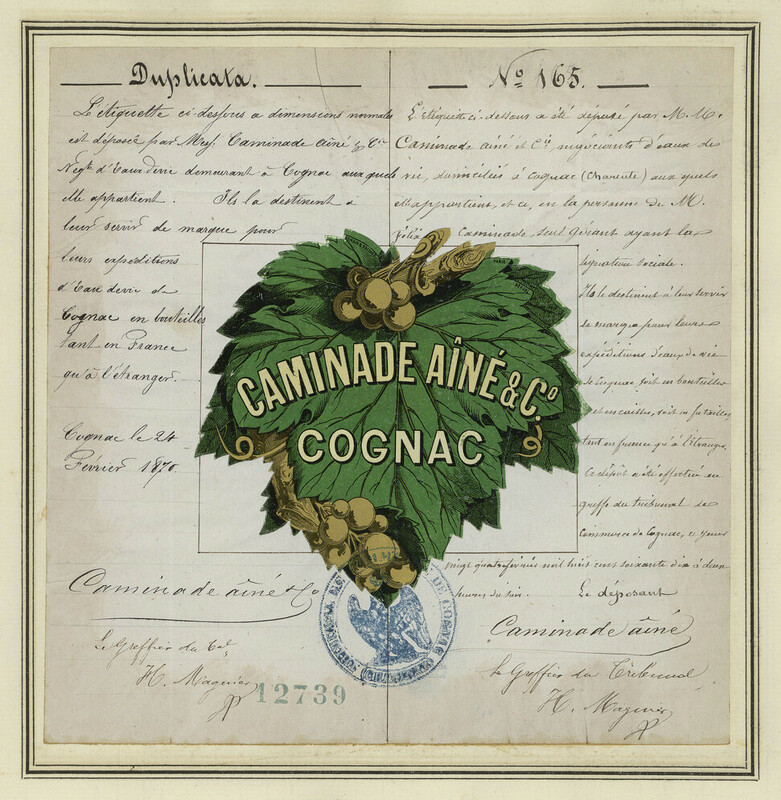 Duplicata.
L'étiquette ci-dessous a dimensions normales
est déposée par Caminade aîné & Cie
Negts d'Eaux devie demeurant à Cognac aux quels
elle appartient. Ils la destinent à
leur servir de marque pour
leurs expéditions
d'Eau devie de
Cognac en bouteilles
tant en France
qu'à l'étranger.
Cognac le 24
Février 1870
Caminade aîné & Co
Le Greffier du Tal
H. Magnier
12739
No 165.
L'étiquette ci-dessous a été déposé par M.M.
Caminade aîné et Cie négociants d'eaux de
vie, domiciliés à Cognac (Charente) aux quels
elle appartient, et ce, en la personne de M.
Félix Caminade, seul gérant ayant la
signature sociale.
Ils le destinent à leur servir
de marque pour leurs
expéditions d'eaux de vie
de Cognac soit en bouteilles
et en caisses, soit en futailles,
tant en france qu'à l'étranger.
Ce dépôt a été effectué au
greffe du tribunal de
Commerce de Cognac, ce jour
vingt quatre février mil huit cent soixante dix à deux
heures du soir. Le déposant
Caminade aîné
Le Greffier du Tribunal
H. Magnier
CAMINADE AÎNÉ & Co.
COGNAC
DE COGNAC